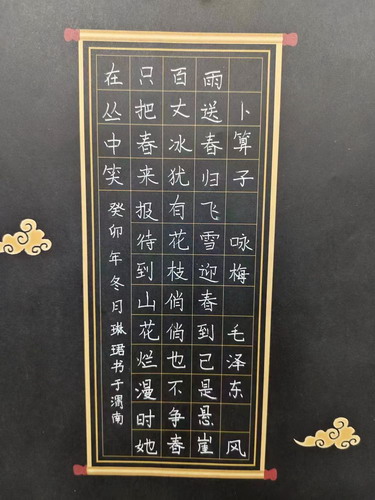 卜算子 咏梅 毛泽东 风
雨送春归飞雪迎春到已是悬崖
百丈冰犹有花枝俏俏也不争春
只把春来报待到山花烂漫时她
在丛中笑 癸卯年冬月琳珺书于渭南